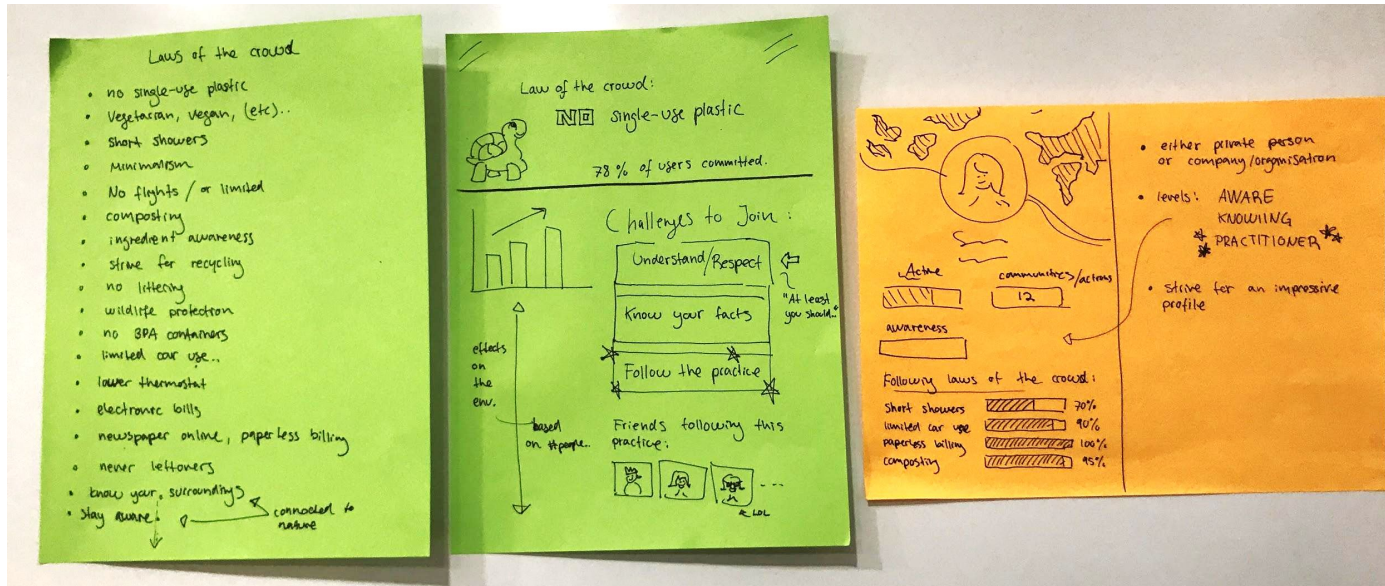 Laws of the crowd
• no single-use plastic
• Vegetarian, vegan, (etc)..
• short showers
• Minimalism
• No flights / or limited
• composting
• ingredient awareness
• strive for recycling
• no littering
• wildlife protection
• no BPA containers
• limited car use..
• lower thermostat
• electronic bills
• newspaper online, paperless billing
• never leftovers
• know your surroundings
• stay aware
connected to
nature
Law of the crowd:
NO single-use plastic
78 % of users committed.
effects
on
the
env.
based
on #people..
Challenges to Join :
Understand/Respect
"At least
you should.."
Know your facts
Follow the practice
Friends following this
practice:
...
LOL
Active
communities/actions
12
awareness
Following laws of the crowd:
short showers 70%
limited car use 90%
paperless billing 100%
composting 95%
• either private person
or company/organisation
• levels: AWARE
KNOWIING
PRACTITIONER
• strive for an impressive
profile